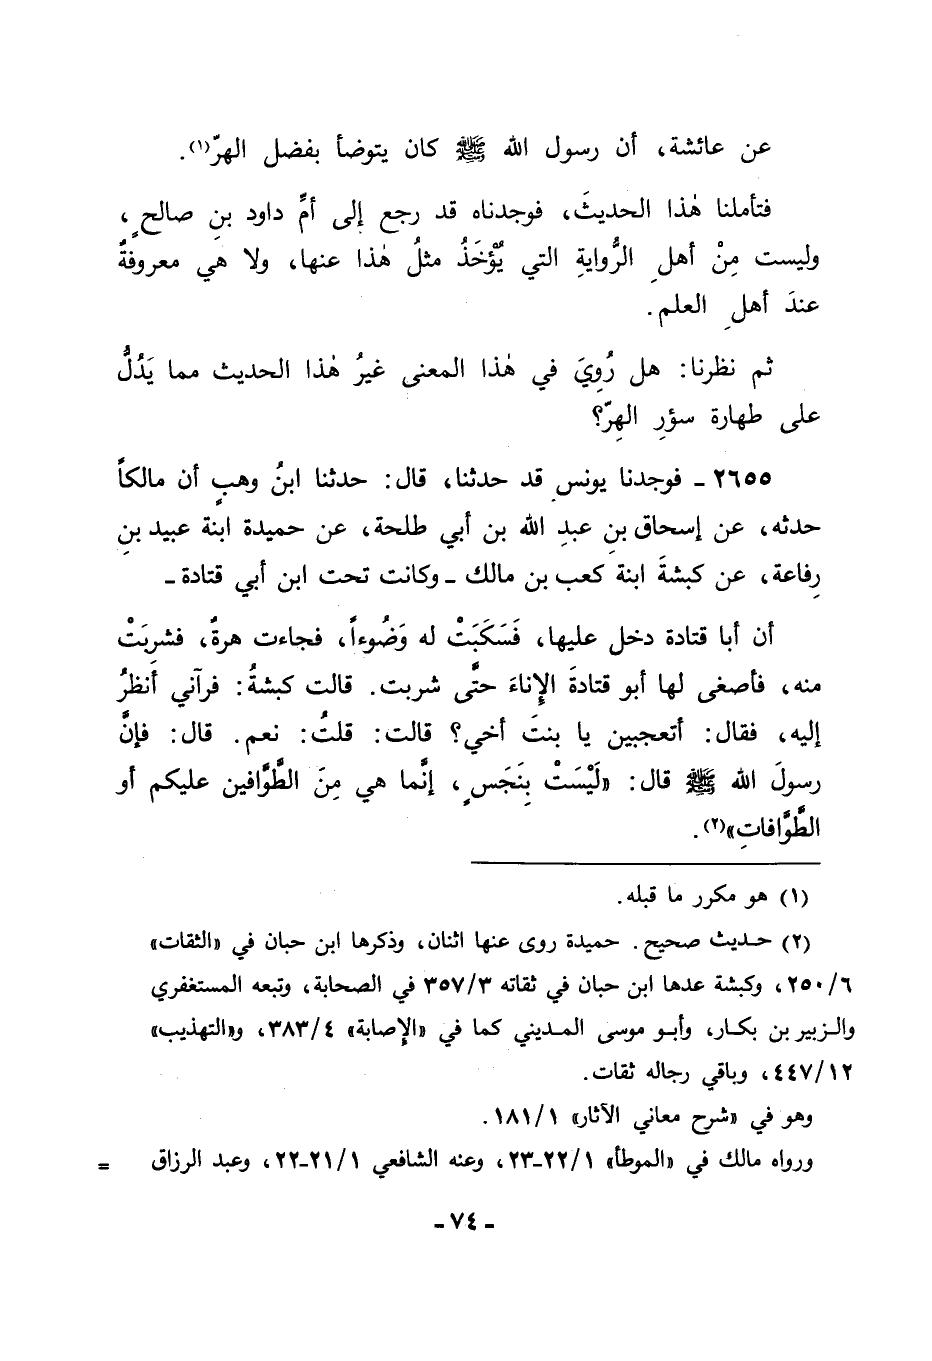 عن عائشة، أن رسول الله ﷺ كان يتوضأ بفضل الهرّ(١).
فتأملنا هٰذا الحديثَ، فوجدناه قد رجع إلى أمِّ داود بنِ صالحٍ،
وليست مِنْ أهلِ الرُّوايةِ التي يُؤْخَذُ مثلُ هٰذا عنها، ولا هي معروفةٌ
عندَ أهلِ العلم.
ثم نظرنا: هل رُوِيَ في هٰذا المعنى غيرُ هٰذا الحديث مما يَدُلُّ
على طهارة سؤرِ الهِرّ؟
٢٦٥٥ ـ فوجدنا يونس قد حدثنا، قال: حدثنا ابنُ وهبٍ أن مالكاً
حدثه، عن إسحاق بنِ عبدِ الله بن أبي طلحة، عن حميدة ابنة عبيد بنِ
رِفاعة، عن كبشةَ ابنة كعب بن مالك ـ وكانت تحت ابن أبي قتادة ـ
أن أبا قتادة دخل عليها، فَسَكَبَتْ له وَضُوءاً، فجاءت هرةٌ، فشرِبَتْ
منه، فأصغى لها أبو قتادةَ الإِناءَ حتَّى شربت. قالت كبشةُ: فرآني أنظرُ
إليه، فقال: أتعجبين يا بنتَ أخي؟ قالت: قلتُ: نعم. قال: فإنَّ
رسولَ الله ﷺ قال: «لَيْسَتْ بِنَجَسٍ، إنَّما هي مِنَ الطَّوَّافين عليكم أو
الطَّوَّافاتِ»(٢).
(١) هو مكرر ما قبله.
(٢) حديث صحيح. حميدة روى عنها اثنان، وذكرها ابن حبان في «الثقات»
٢٥٠/٦، وكبشة عدها ابن حبان في ثقاته ٣٥٧/٣ في الصحابة، وتبعه المستغفري
والزبير بن بكار، وأبو موسى المديني كما في «الإصابة» ٣٨٣/٤، و«التهذيب»
٤٤٧/١٢، وباقي رجاله ثقات.
وهو في «شرح معاني الآثار» ١٨١/١.
ورواه مالك في «الموطأ» ٢٢/١-٢٣، وعنه الشافعي ٢١/١-٢٢، وعبد الرزاق =
- ٧٤ -